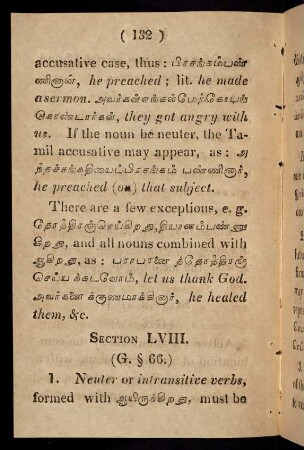 ( 132 )
accusative case, thus : பிரசங்கம்பண்
ணினான், he preached : lit. he made
a sermon. அவர்களெங்கள்மேற்கோபங்
கொண்டார்கள், they got angry with
us. If the noun be neuter, the Ta-
mil accusative may appear, as : அ
ந்தச்சங்கதியைப்பிரசங்கம் பண்ணினார்,
he preached (on) that subject.
There are a few exceptions, e. g.
தோத்திரஞ்செய்கிறது, தியானம்பண்ணு
கிறது, and all nouns combined with
ஆகிறது, as : பராபரனை த்தோத்திரஞ்
செய்ய க்கடவோம், let us thank God.
அவர்களை க்குணமாக்கினார், he healed
them, &c.
SECTION LVIII.
(G. § 66.)
1. Neuter or intransitive verbs,
formed with ஆயிருக்கிறது, must be